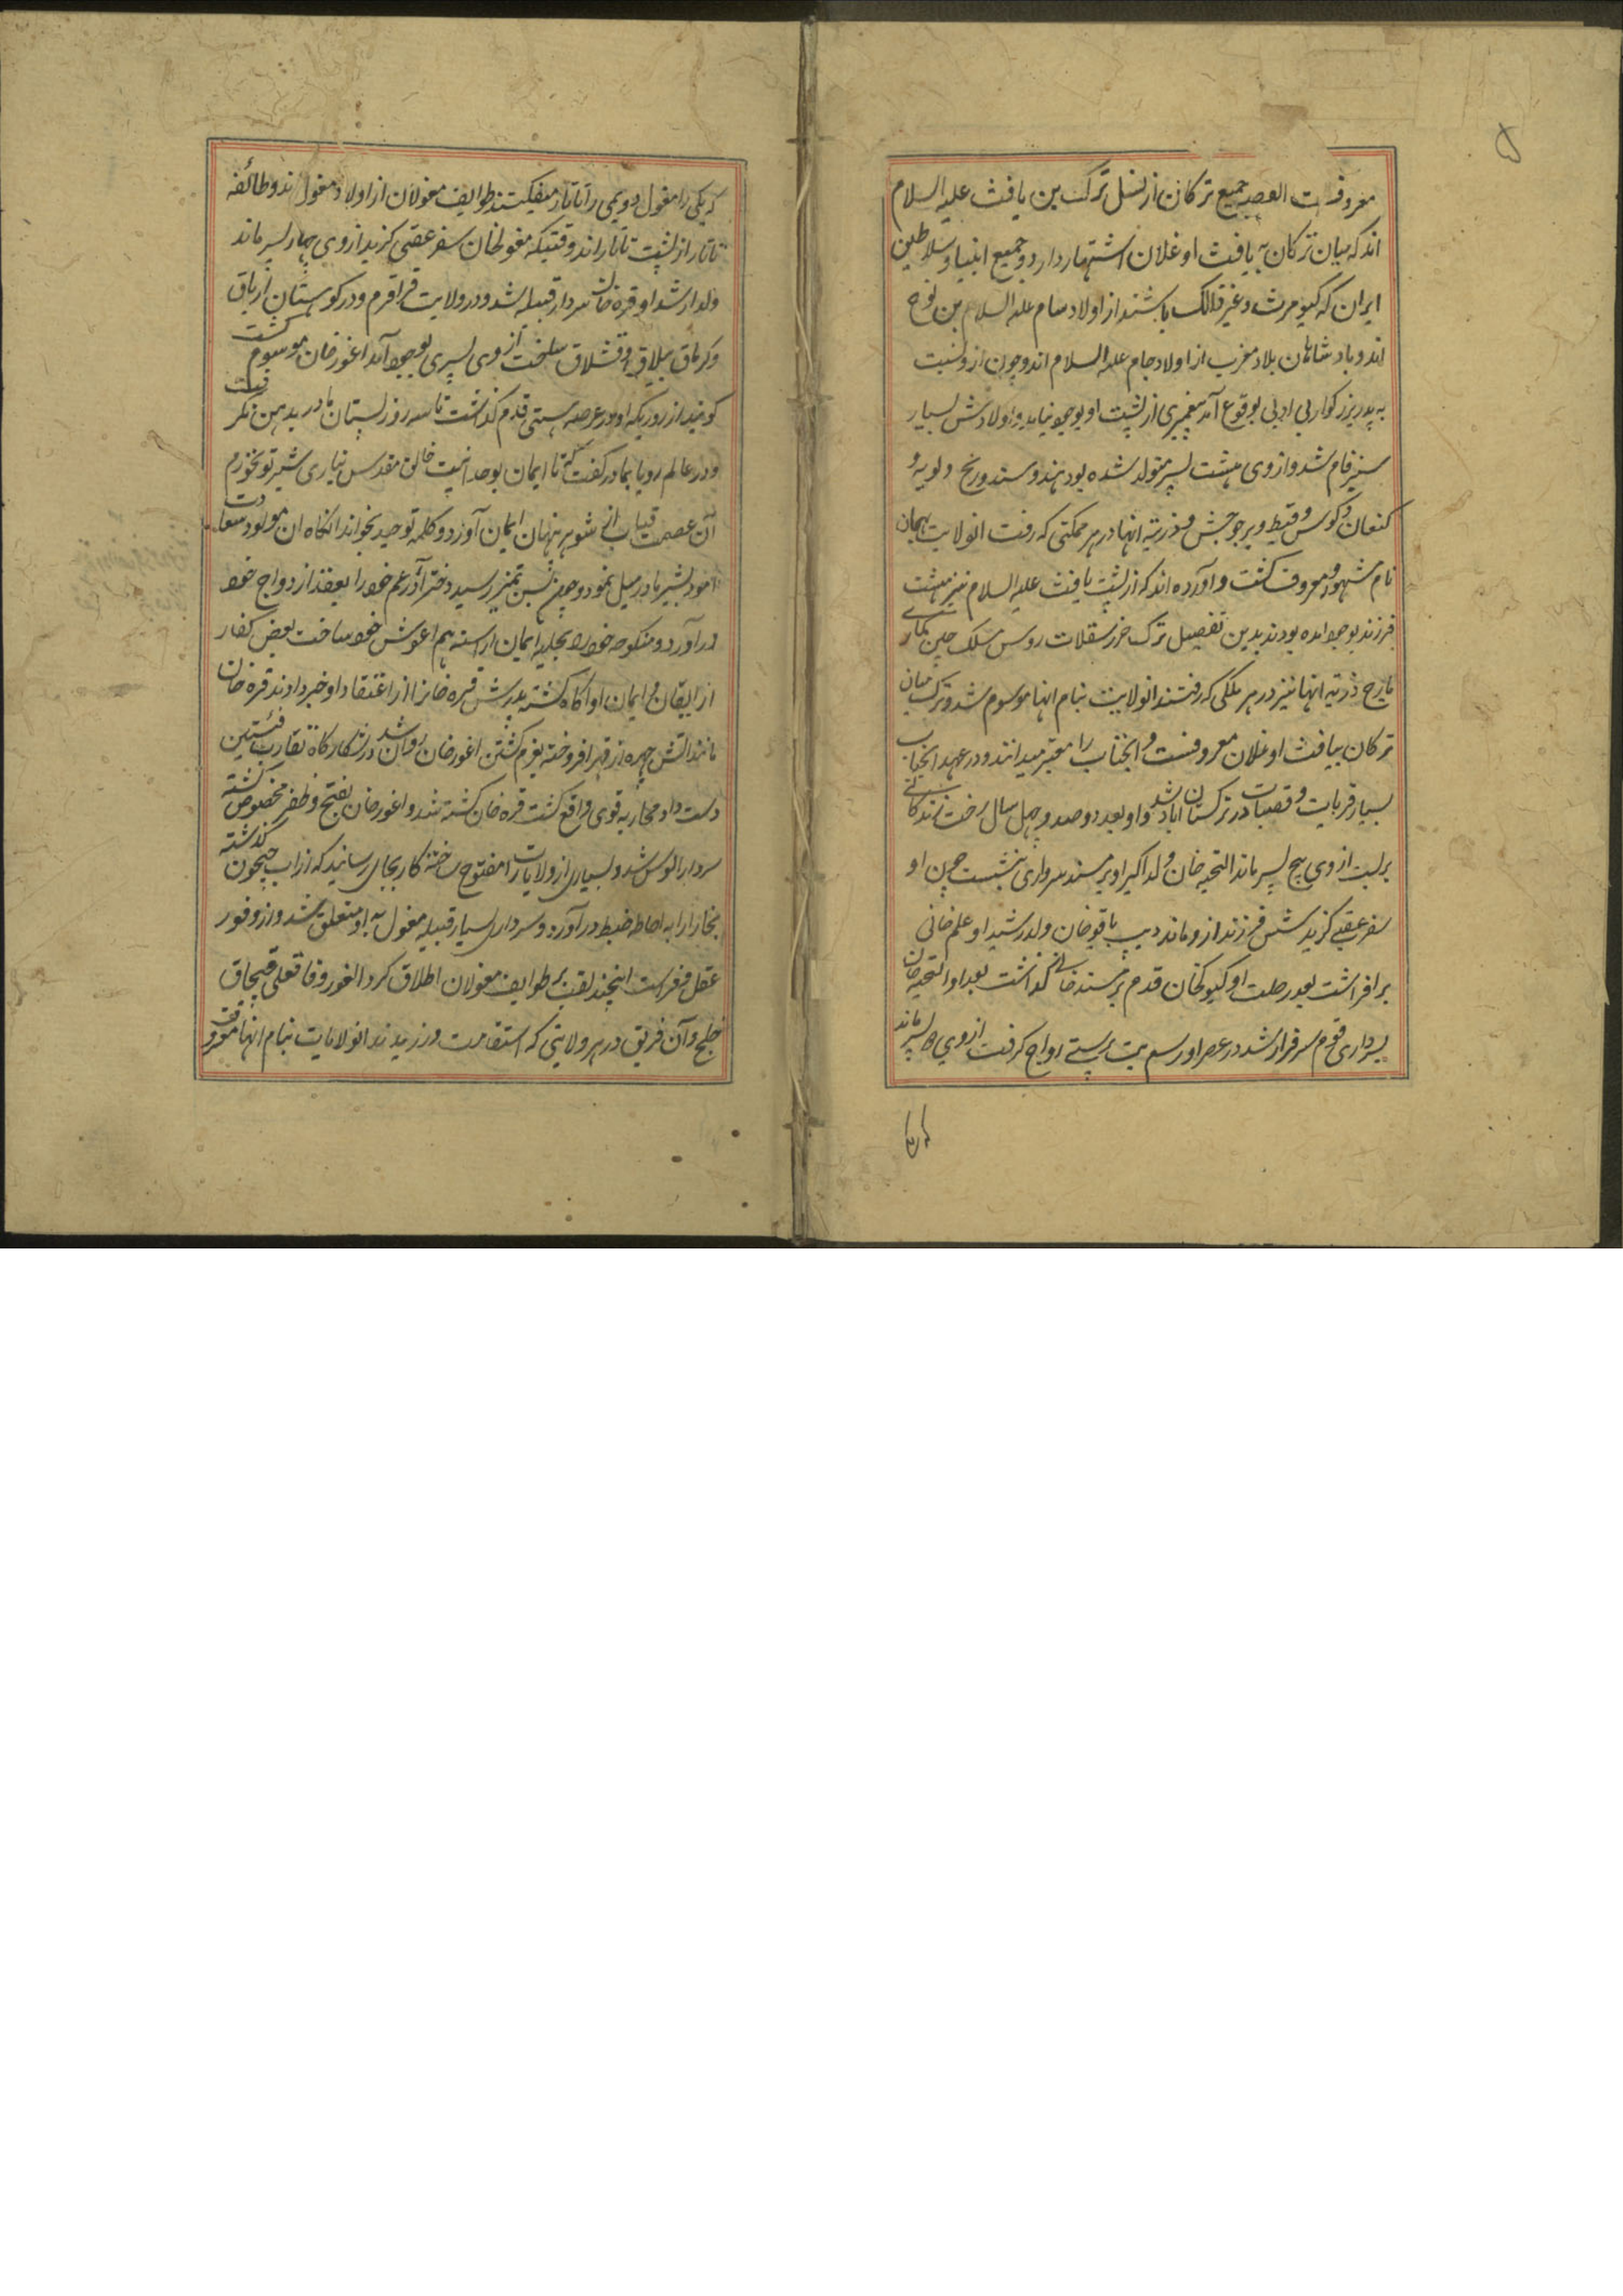 ۵
معروفست القصه جمیع ترکان از نسل ترک بن یافث علیه السلام
اند که میان ترکان به یافث اوغلان اشتهار دارد و جمیع انبیا و سلاطین
ایران که کیومرث و غیر ذالک باشند از اولاد سام علیه السلام بن نوح
اند و بادشاهان بلاد مغرب از اولاد حام علیه السلام اند و چون ازو نسبت
به پدر بزرکوار بی ادبی بوقوع آمد پیغمبری از پشت او بوجود نیامد و اولادش بسیار
سبز فام شد و از وی هشت پسر متولد شده بود هند و سند و زنج و نوبه و
کنعان و کوس و قبط و بربر و حبش و ذریته انها در هر مملکتی که رفت انولایت بهمان
نام مشهور و معروف کشت و اورده اند که از پشت یافث علیه السلام نیز هشت
فرزند بوجود امده بودند بدین تفصیل ترک خزر سقلاب روس منسک چین کماری
تارج ذریه انها نیز در هر ملکی که رفتند انولایت بنام انها موسوم شد و ترک میان
ترکان بیافث اوغلان معروفست و انجناب را معتبر میدانند و در عهد انجناب
بسیار قریات و قصبات در ترکستان اباد شد و او بعد دو صد و چهل سال رخت زندکانی
بربست از وی پنج پسر ماند التجه خان ولد اکبر او بر مسند سرداری بنشست چون او
سفر عقبی کزید شش فرزند ازو ماند دیب باقوخان ولد رشید او علم خانی
برافراشت بعد رحلت او کیوکخان قدم بر مسند خانی کذاشت بعد او التجه خان
بسرداری قوم سرفراز شد در عصر او رسم بت پرستی رواج کرفت از وی دو پسر ماند
که یکی را مغول دویمی را تاتار میکفتند طوایف مغولان از اولاد مغول اند و طائفه
تاتار از پشت تاتار اند وقتیکه مغولخان سفر عقبی کزید از وی چهار پسر ماند
ولد ارشد او قره خان سردار قبیله شد و در ولایت قراقرم و در کوهستان ارتاق
و کرتاق ییلاق و قشلاق ساخت از وی پسری بوجود آمد اغورخان موسوم کشت
کویند از روزیکه او در عرصه هستی قدم کذاشت تا سه روز پستان مادر بدهن نکرفت
و در عالم رویا بمادر کفت که تا ایمان بوحدانیت خالق مقدس نیاری شیر تو نخورم
آن عصمت قباب از شوهر پنهان ایمان آورد و کلمه توحید بخواند انکاه ان مولود سعادت
امود بشیر مادر میل نمود و چون بسن تمیز رسید دختر آذر عم خود را بعقد ازدواج خود
در آورد و منکوحه خود را بحلیه ایمان اراسته هم اغوش خود ساخت بعض کفار
از ایقان و ایمان او اکاه کشته پدرش قره خانرا از اعتقاد او خبر دادند قره خان
مانند اتش چهره از قهر افروخته بعزم کشتن اغورخان روان شد در شکارکاه تقارب فئتین
دست داد و محاربه قوی واقع کشت قره خان کشته شد و اغورخان بفتح و ظفر مخصوص کشته
سردار الوس شد و بسیاری از ولایات را مفتوح ساخته کار بجای رسانید که از اب جیحون کذشته
بخارا را به احاطه ضبط در آورد و سرداری بسیار قبیله مغول به او متعلق شد و از وفور
عقل و فراست اینچند لقب بر طوایف مغولان اطلاق کرد الغور و قانقلی قبچاق
خلج و آن فریق در هر ولایتی که استقامت ورزیدند انولایات بنام انها معروف